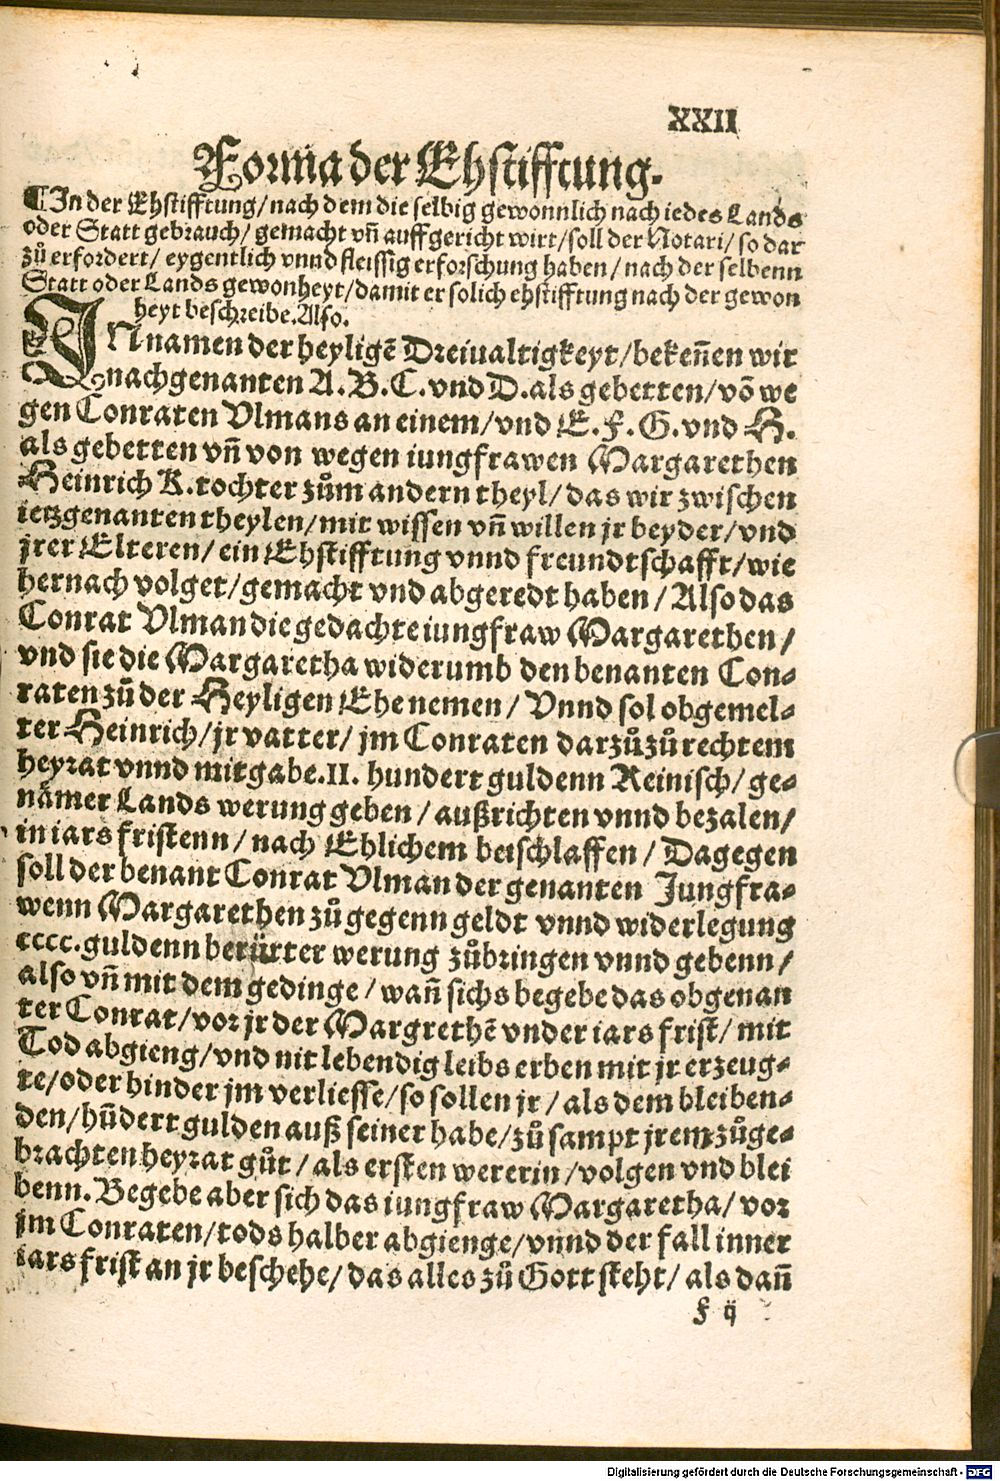 XXII
Forma der Ehstifftung.
¶In der Ehstifftung/ nach dem die selbig gewonnlich nach iedes Lands
oder Statt gebrauch/ gemacht vñ auffgericht wirt/ soll der Notari/ so dar
zů erfordert/ eygentlich vnnd fleissig erforschung haben/ nach der selbenn
Statt oder Lands gewonheyt/ damit er solich ehstifftung nach der gewon
heyt beschreibe. Also.
IN namen der heyligẽ Dreiualtigkeyt/ bekeñen wir
nachgenanten A. B. C. vnd D. als gebetten/ võ we
gen Conraten Vlmans an einem/ vnd E. F. G. vnd H.
als gebetten vñ von wegen iungfrawen Margarethen
Heinrich K. tochter zům andern theyl/ das wir zwischen
ietzgenanten theylen/ mit wissen vñ willen jr beyder/ vnd
jrer Elteren/ ein Ehstifftung vnnd freundtschafft/ wie
hernach volget/ gemacht vnd abgeredt haben/ Also das
Conrat Vlman die gedachte iungfraw Margarethen/
vnd sie die Margaretha widerumb den benanten Con-
raten zů der Heyligen Ehe nemen/ Vnnd sol obgemel-
ter Heinrich/ jr vatter/ jm Conraten darzů zů rechtem
heyrat vnnd mitgabe. II. hundert guldenn Reinisch/ ge-
nämer Lands werung geben/ außrichten vnnd bezalen/
in iars fristenn/ nach Ehlichem beischlaffen/ Dagegen
soll der benant Conrat Vlman der genanten Jungfra-
wenn Margarethen zů gegenn geldt vnnd widerlegung
cccc. guldenn berürter werung zůbringen vnnd gebenn/
also vñ mit dem gedinge/ wañ sichs begebe das obgenan
ter Conrat/ vor jr der Margrethẽ vnder iars frist/ mit
Tod abgieng/ vnd nit lebendig leibs erben mit jr erzeug-
te/ oder hinder jm verliesse/ so sollen jr/ als dem bleiben-
den/ hũdert gulden auß seiner habe/ zů sampt jrem zůge-
brachten heyrat gůt/ als ersten wererin/ volgen vnd blei
benn. Begebe aber sich das iungfraw Margaretha/ vor
jm Conraten/ tods halber abgienge/ vnnd der fall inner
iars frist an jr beschehe/ das alles zů Gott steht/ als dañ
f ij
Digitalisierung gefördert durch die Deutsche Forschungsgemeinschaft - DFG